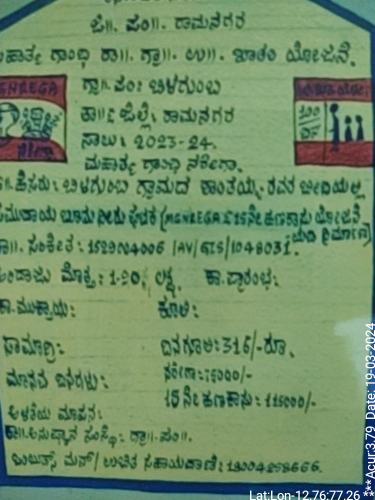 ಜಿ||. ಪಂ||. ರಾಮನಗರ
ಮಹಾತ್ಮ ಗಾಂಧಿ ರಾ||. ಗ್ರಾ||. ಉ||. ಖಾತರಿ ಯೋಜನೆ.
ಗ್ರಾ. ಪಂ: ಬಿಳಗುಂಬ
ತಾ||/ಜಿಲ್ಲೆ: ರಾಮನಗರ
ಸಾಲು: 2023-24.
ಮಹಾತ್ಮ ಗಾಂಧಿ ನರೇಗಾ.
ಹೆಸರು: ಬಿಳಗುಂಬ ಗ್ರಾಮದ ಕಾಂತಯ್ಯ ರವರ ಬೀದಿಯಲ್ಲಿ
ಸಮುದಾಯ (MGNREGA & 15ನೇ ಹಣಕಾಸು ಯೋಜನೆ
ಕಾ||. ಸಂಕೇತ: 1529004006/AV/GIS/1048031.
ಅಂದಾಜು ಮೊತ್ತ: 1.90, ಲಕ್ಷ. ಕಾ.ಪ್ರಾರಂಭ:
ಕಾ.ಮುಕ್ತಾಯ: ಕೂಲಿ:
ಸಾಮಾಗ್ರಿ: ದಿನಗೂಲಿ: 316/-ರೂ.
ಮಾನವ ದಿನಗಳು: ನರೇಗಾ: 75000/-
15ನೇ ಹಣಕಾಸು: 115000/-
ಅಳತೆಯ ಮಾಪನ:
ಕಾ||. ಅನುಷ್ಠಾನ ಸಂಸ್ಥೆ: ಗ್ರಾ||. ಪಂ||.
ಉಚಿತ ಸಹಾಯವಾಣಿ: 18004258666.
Lat:Lon-12.76:77.26 ***Acur:3.79 Date: 19-03-2024